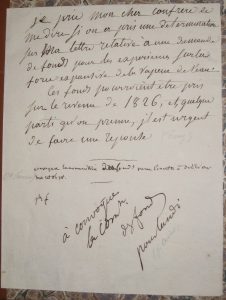 je prie mon cher confrere de
me dire si on a pris une determination
sur ma lettre relative a une demande
de fonds pour les experiences sur la
force expansive de la vapeur de l'eau.
les fonds pourroient etre pris
sur le revenu de 1826, et quelque
parti qu'on prenne, il est urgent
de faire une reponse
convoquer la commission des fonds pour
à convoquer
la Com.on
des fonds
pour lundi